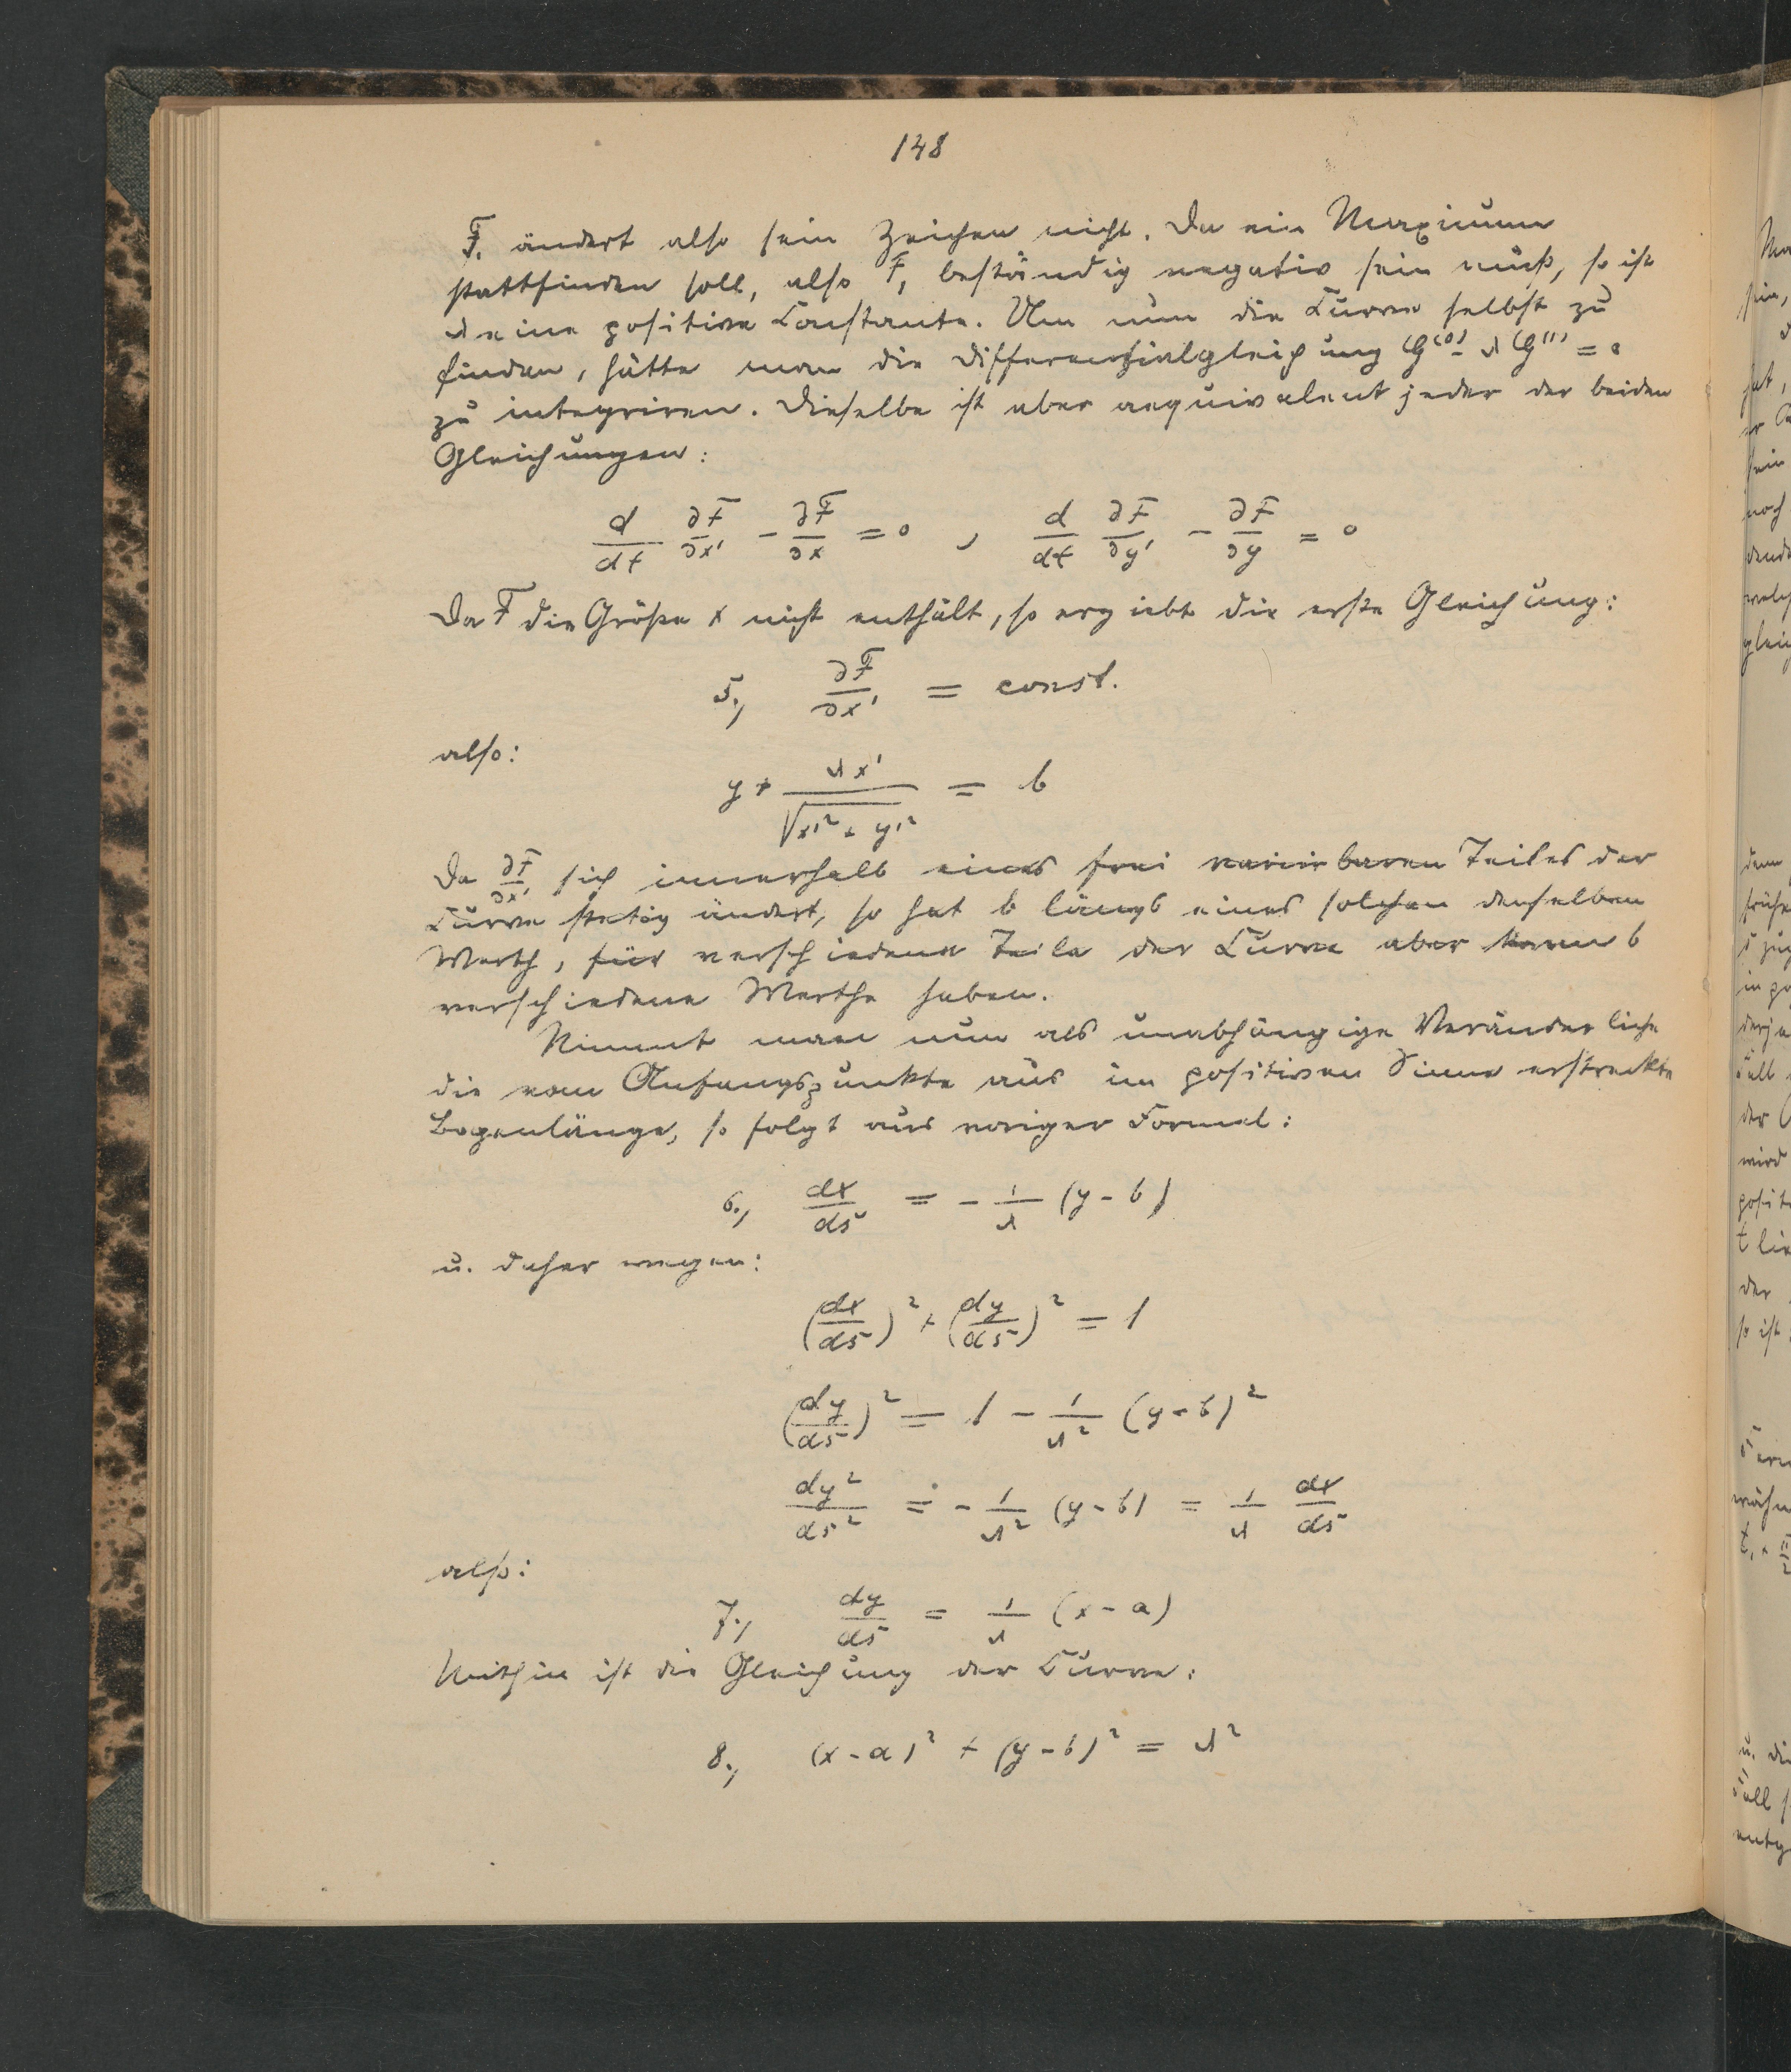 148
F₁ ändert also sein Zeichen nicht. Da ein Maximum
stattfinden soll, also F₁ beständig negativ sein muß, so ist
λ eine positive Constante. Um nun die Curve selbst zu
finden, hätte man die Differenzialgleichung G⁽⁰⁾ - λ G⁽¹⁾ = 0
zu integriren. Dieselbe ist aber aequivalent jeder der beiden
Gleichungen:
d/dt ∂F/∂x' - ∂F/∂x = 0 , d/dt ∂F/∂y' - ∂F/∂y = 0
Da F die Größe x nicht enthält, so ergiebt die erste Gleichung:
5., ∂F/∂x' = const.
also:
y + λx'/√(x'² + y'²) = b
Da ∂F/∂x' sich innerhalb eines frei variirbaren Teiles der
Curve stetig ändert, so hat b längs eines solchen denselben
Werth, für verschiedene Teile der Curve aber kann b
verschiedene Werthe haben.
Nimmt man nun als unabhängige Veränderliche
die vom Anfangspunkte aus im positiven Sinne erstreckte
Bogenlänge, so folgt aus voriger Formel:
6., dx/ds = - 1/λ (y - b)
u. daher wegen:
(dx/ds)² + (dy/ds)² = 1
(dy/ds)² = 1 - 1/λ² (y - b)²
dy²/ds² = - 1/λ² (y - b) = 1/λ dx/ds
also:
7., dy/ds = 1/λ (x - a)
Mithin ist die Gleichung der Curve:
8., (x - a)² + (y - b)² = λ²